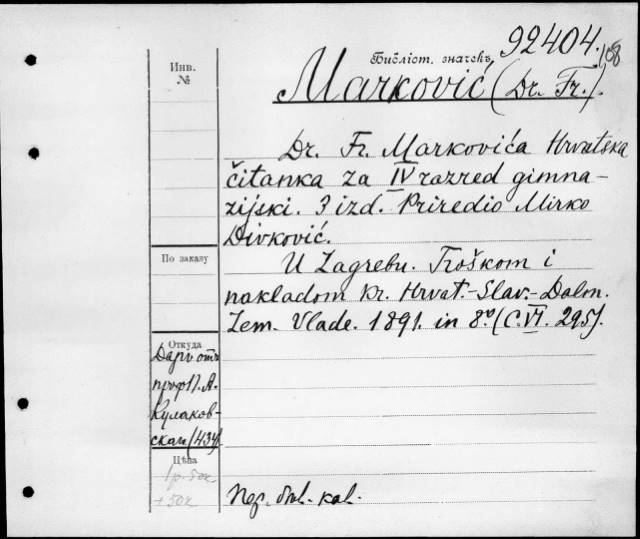 92404.
108
Библіот. значекъ
Marković (Dr. Fr.).
Инв.
№
Dr. Fr. Markovića Hrvatska
čitanka za IV razred gimna-
zijski. 3 izd. Priredio Mirko
Divković.
По заказу
U Zagrebu. Troškom i
nakladom kr. Hrvat.-Slav.-Dalm.
Zem. Vlade. 1891. in 8º. (C. VI. 295).
Откуда
Даръ отъ
проф. П. А.
Кулаков-
скаго (434).
Цѣна
1 р. 50 к.
+ 50 к.
kal.